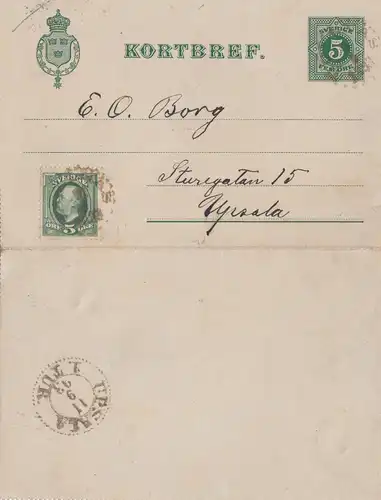 KORTBREF.
SVERIGE
5
FEM ÖRE
E. O. Borg
Sturegatan 15
Upsala
SVERIGE
ÖRE 5 ÖRE
UPSALA 1 TUR
11
9